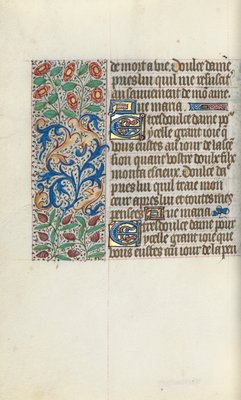 de mort a vie. Doulce dame
pries luy quil me resusat
au sauuement de mo ame.
Aue maria.
Tresdoulce dame po
ycelle grant ioie q
vous eustes au iour de lasce
sion quant vostre doulz filz
monta es cieulx. Doulce da
pries luy quil traie mon
cuer apres luy et toutes mes
pensees. Aue maria.
Tresdoulce dame pour
ycelle grant ioie que
vous eustes au iour de la pen